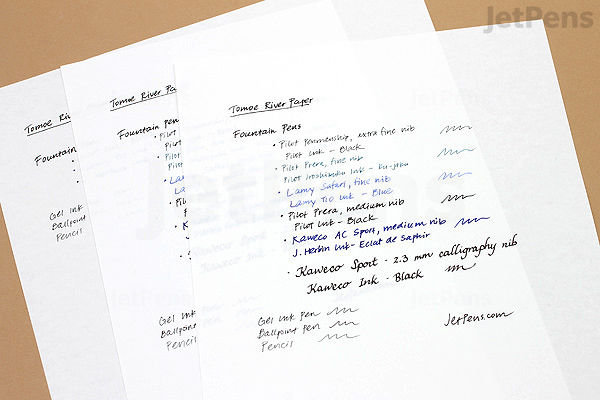 JetPens
Tomoe River Paper
Fountain Pens
• Pilot Penmanship, extra fine nib
Pilot Ink - Black
• Pilot Prera, fine nib
Pilot Iroshizuku Ink - Ku-jaku
• Lamy Safari, fine nib
Lamy T10 Ink - Blue
• Pilot Prera, medium nib
Pilot Ink - Black
• Kaweco AC Sport, medium nib
J. Herbin Ink - Eclat de Saphir
• Kaweco Sport - 2.3 mm calligraphy nib
Kaweco Ink - Black
Gel Ink Pen
Ballpoint Pen
Pencil
JetPens.com
Tomoe River Pa
Fountain Pen
• Pilot
Pilot
• Pilot
Pilot
• Lam
Lam
Gel Ink
Ballpoint
Pencil
Tomoe Riv
Fountain
Gel Ink
Ballpoint
Pencil